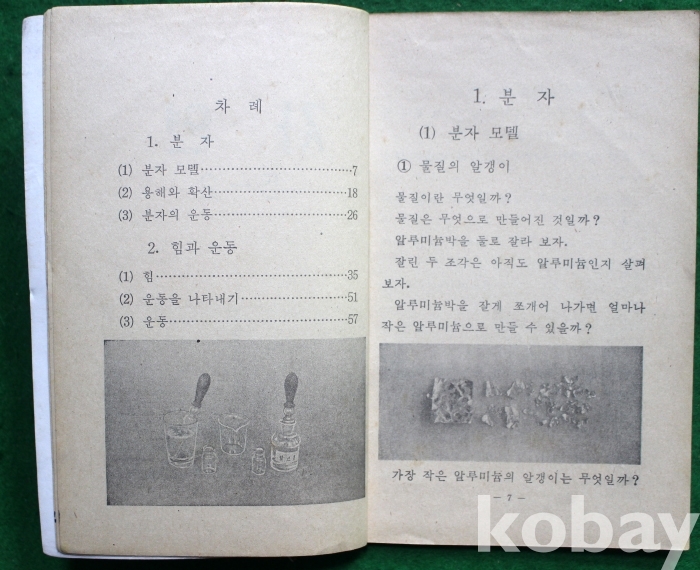 차 례
1. 분 자
(1) 분자 모델 7
(2) 용해와 확산 18
(3) 분자의 운동 26
2. 힘과 운동
(1) 힘 35
(2) 운동을 나타내기 51
(3) 운동 57
1. 분 자
(1) 분자 모델
① 물질의 알갱이
물질이란 무엇일까?
물질은 무엇으로 만들어진 것일까?
알루미늄박을 둘로 잘라 보자.
잘린 두 조각은 아직도 알루미늄인지 살펴
보자.
알루미늄박을 잘게 쪼개어 나가면 얼마나
작은 알루미늄으로 만들 수 있을까?
가장 작은 알루미늄의 알갱이는 무엇일까?
- 7 -
kobay